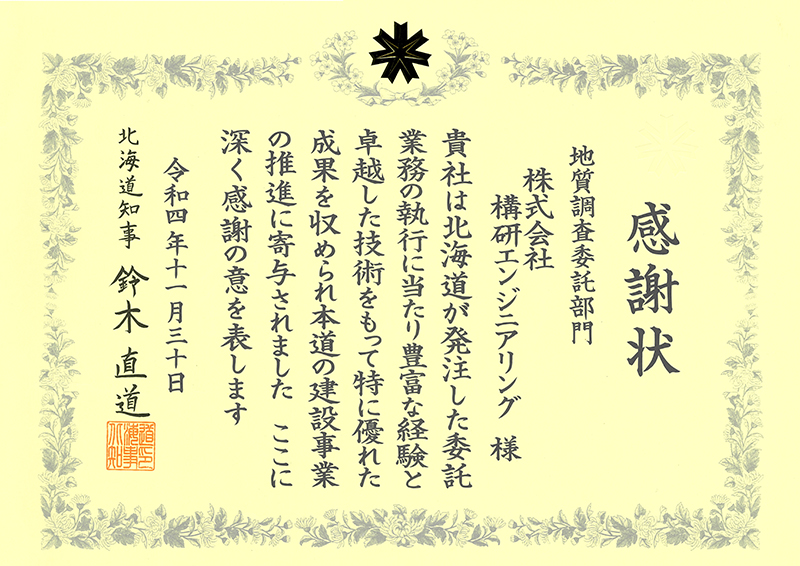 感謝状
地質調査委託部門
株式会社
構研エンジニアリング 様
貴社は北海道が発注した委託
業務の執行に当たり豊富な経験と
卓越した技術をもって特に優れた
成果を収められ本道の建設事業
の推進に寄与されました ここに
深く感謝の意を表します
令和四年十一月三十日
北海道知事 鈴木直道